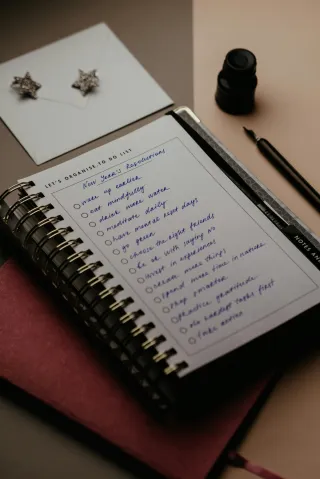 LET'S ORGANISE TO DO LIST
New Year's Resolutions
wake up earlier
eat mindfully
drink more water
meditate daily
have mental rest days
go green
choose the right friends
be ok with saying no
invest in experiences
create more things
spend more time in nature
shop smarter
practice gratitude
do hardest tasks first
take action
NOTES AND